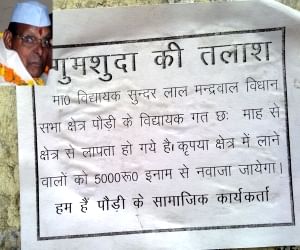 गुमशुदा की तलाश
मा0 विद्यायक सुन्दर लाल मन्द्रवाल विधान
सभा क्षेत्र पौड़ी के विद्यायक गत छः माह से
क्षेत्र से लापता हो गये है। कृपया क्षेत्र में लाने
वालों को 5000रू0 इनाम से नवाजा जायेगा।
हम हैं पौड़ी के सामाजिक कार्यकर्ता